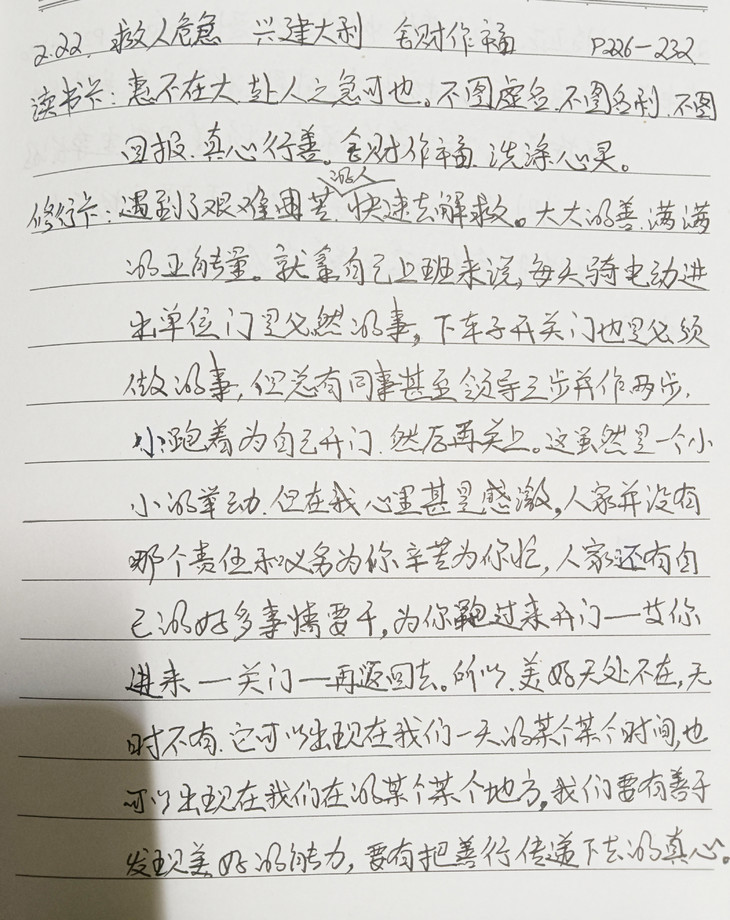 2.22. 救人危急 兴建大利 舍财作福 P226-232
读书卡:惠不在大,赴人之急可也。不图虚名,不图名利,不图
回报,真心行善。舍财作福,洗涤心灵。
修行卡:遇到了艰难困苦的人,快速去解救。大大的善,满满
的正能量。就拿自己上班来说,每天骑电动进
出单位门是必然的事,下车子开关门也是必须
做的事,但总有同事甚至领导三步并作两步,
小跑着为自己开门,然后再关上。这虽然是一个小
小的举动,但在我心里甚是感激,人家并没有
哪个责任和义务为你辛苦为你忙,人家还有自
己的好多事情要干,为你跑过来开门一等你
进来一关门一再返回去。所以,美好无处不在,无
时不有,它可以出现在我们一天的某个某个时间,也
可以出现在我们在的某个某个地方,我们要有善于
发现美好的能力,要有把善行传递下去的真心。